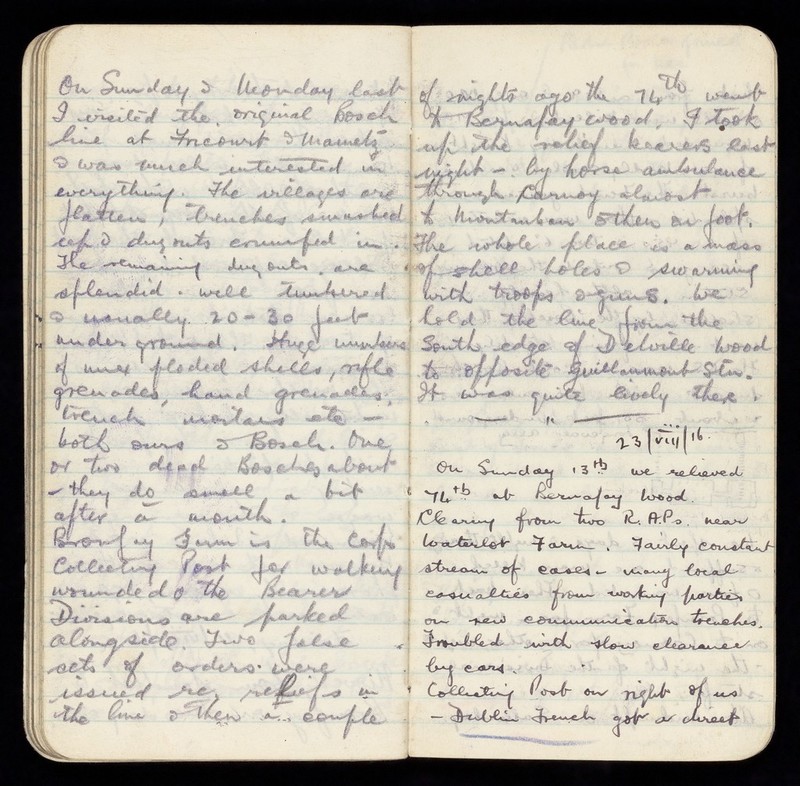 On Sunday & Monday last
I visited the original Bosch
line at Fricourt & Mametz
& was much interested in
everything. The villages are
flatten, trenches smashed
up & dug outs crumped in.
The remaining dug outs are
splendid. well timbered
& usually 20-30 feet
under ground. Huge numbers
of unexploded shells, rifle
grenades, hand grenades,
trench mortars etc -
both ours & Bosch. One
or two dead Bosches about
- they do smell a bit
after a month.
Bronfay Farm is the Corps
Collecting Post for walking
wounded & the Bearer
Divisions are parked
alongside. Two false
sets of orders were
issued re reliefs in
the line & then a couple
of nights ago the 74th went
to Bernafay wood. I took
up the relief bearers last
night - by horse ambulance
through Carnoy almost
to Montauban & then on foot.
The whole place is a mass
of shell holes & swarming
with troops & guns. We
hold the line from the
South edge of Delville Wood
to opposite Guillaumont Stn.
It was quite lively there.
— " —
23/viii/16.
On Sunday 13th we relieved
74th at Bernafay Wood.
Clearing from two R.A.Ps. near
Waterlot Farm. Fairly constant
stream of cases - many local
casualties from working parties
on new communication trenches.
Troubled with slow clearance
by cars.
Collecting Post on right of us
- Dublin Trench got a direct